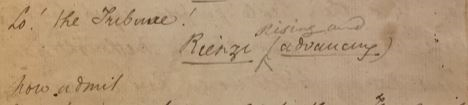 Lo! the Tribune!
Rienzi (rising and advancing)
now admit